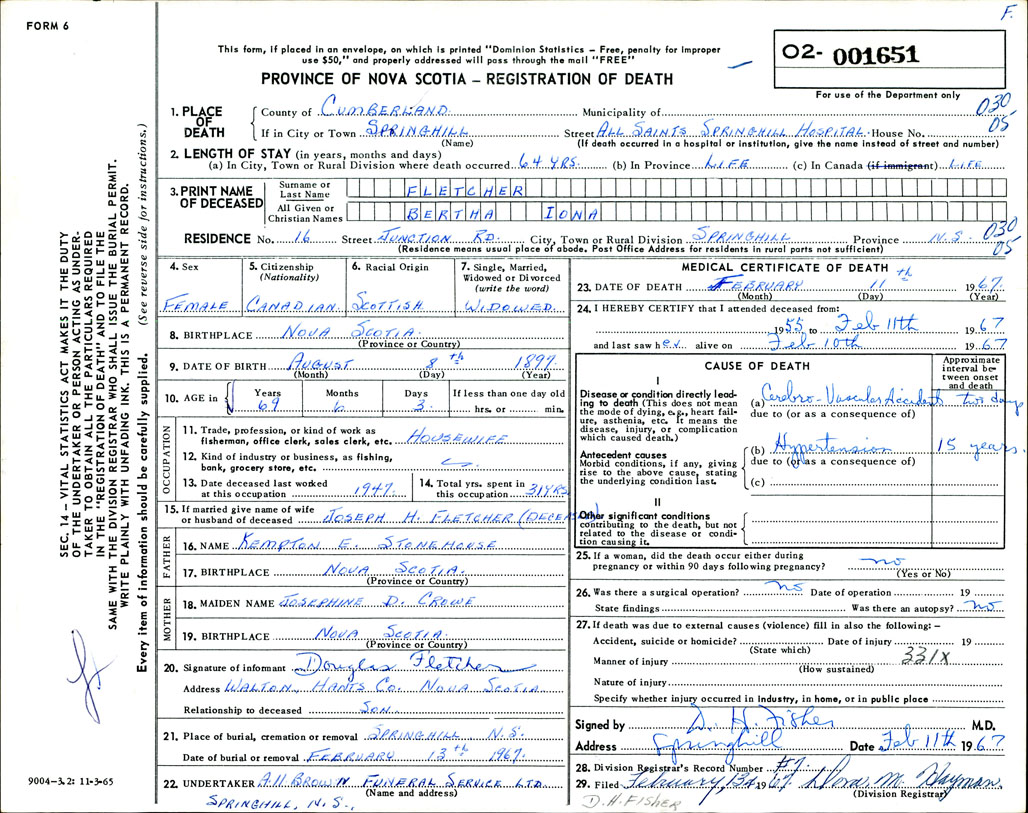 F.
FORM 6
This form, if placed in an envelope, on which is printed "Dominion Statistics – Free, penalty for improper
use $50," and properly addressed will pass through the mail "FREE"
PROVINCE OF NOVA SCOTIA – REGISTRATION OF DEATH
02- 001651
For use of the Department only
030
05
1. PLACE OF DEATH
County of CUMBERLAND Municipality of
If in City or Town SPRINGHILL Street ALL SAINTS SPRINGHILL HOSPITAL House No.
(Name) (If death occurred in a hospital or institution, give the name instead of street and number)
2. LENGTH OF STAY (in years, months and days)
(a) In City, Town or Rural Division where death occurred 64 YRS. (b) In Province LIFE (c) In Canada (if immigrant) LIFE
3. PRINT NAME OF DECEASED
Surname or Last Name FLETCHER
All Given or Christian Names BERTHA IONA
RESIDENCE No. 16 Street JUNCTION RD. City, Town or Rural Division SPRINGHILL Province N.S. 030
05
(Residence means usual place of abode. Post Office Address for residents in rural parts not sufficient)
4. Sex
FEMALE
5. Citizenship (Nationality)
CANADIAN
6. Racial Origin
SCOTTISH
7. Single, Married, Widowed or Divorced (write the word)
WIDOWED
8. BIRTHPLACE NOVA SCOTIA
(Province or Country)
9. DATE OF BIRTH AUGUST 8th 1897
(Month) (Day) (Year)
10. AGE in Years Months Days If less than one day old
69 6 3 hrs. or min.
OCCUPATION
11. Trade, profession, or kind of work as
fisherman, office clerk, sales clerk, etc. HOUSEWIFE
12. Kind of industry or business, as fishing,
bank, grocery store, etc.
13. Date deceased last worked
at this occupation 1947
14. Total yrs. spent in
this occupation 31 YRS
15. If married give name of wife
or husband of deceased JOSEPH H. FLETCHER (DECEASED)
FATHER
16. NAME KEMPTON E. STONEHOUSE
17. BIRTHPLACE NOVA SCOTIA
(Province or Country)
MOTHER
18. MAIDEN NAME JOSEPHINE D. CROWE
19. BIRTHPLACE NOVA SCOTIA
(Province or Country)
20. Signature of informant Douglas Fletcher
Address WALTON, HANTS CO. NOVA SCOTIA
Relationship to deceased SON
21. Place of burial, cremation or removal SPRINGHILL N.S.
Date of burial or removal FEBRUARY 13th 1967
22. UNDERTAKER A.H. BROWN FUNERAL SERVICE LTD
(Name and address)
SPRINGHILL, N.S.
MEDICAL CERTIFICATE OF DEATH
23. DATE OF DEATH FEBRUARY 11th 1967
(Month) (Day) (Year)
24. I HEREBY CERTIFY that I attended deceased from:
1955 to Feb 11th 1967
and last saw her alive on Feb 10th 1967
CAUSE OF DEATH
Approximate interval between onset and death
I
Disease or condition directly leading to death (This does not mean the mode of dying, e.g., heart failure, asthenia, etc. It means the disease, injury, or complication which caused death.)
(a) Cerebro-Vascular Accident two days
due to (or as a consequence of)
Antecedent causes
Morbid conditions, if any, giving rise to the above cause, stating the underlying condition last.
(b) Hypertension 15 years.
due to (or as a consequence of)
(c)
II
Other significant conditions
contributing to the death, but not related to the disease or condition causing it.
25. If a woman, did the death occur either during
pregnancy or within 90 days following pregnancy? no
(Yes or No)
26. Was there a surgical operation? no Date of operation 19
State findings Was there an autopsy? no
27. If death was due to external causes (violence) fill in also the following: –
Accident, suicide or homicide? Date of injury 19
(State which)
331X
Manner of injury
(How sustained)
Nature of injury
Specify whether injury occurred in industry, in home, or in public place
Signed by D. H. Fisher M.D.
Address Springhill Date Feb 11th 1967
28. Division Registrar's Record Number #7
29. Filed February 13 1967
(Division Registrar)
D.H. FISHER
SEC. 14 – VITAL STATISTICS ACT MAKES IT THE DUTY
OF THE UNDERTAKER OR PERSON ACTING AS UNDER-
TAKER TO OBTAIN ALL THE PARTICULARS REQUIRED
IN THE "REGISTRATION OF DEATH" AND TO FILE THE
SAME WITH THE DIVISION REGISTRAR WHO SHALL ISSUE THE BURIAL PERMIT.
WRITE PLAINLY WITH UNFADING INK. THIS IS A PERMANENT RECORD.
Every item of information should be carefully supplied. (See reverse side for instructions.)
9004-3.2: 11-3-65